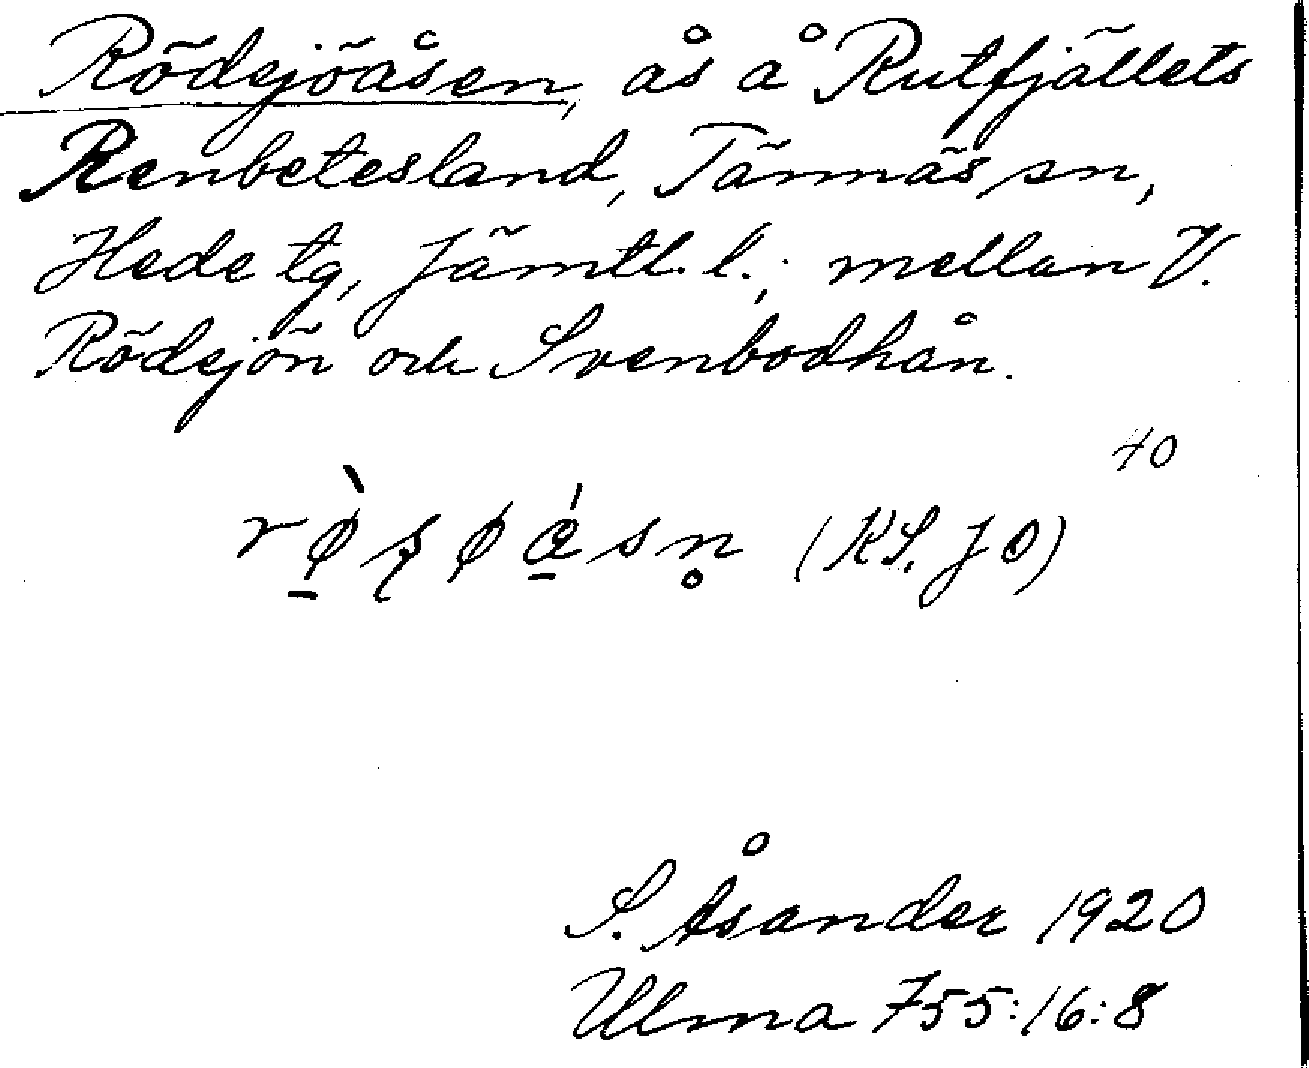 Rödsjöåsen, ås å Rutfjällets
Renbetesland, Tännäs sn,
Hede tg, Jämtl. l.; mellan V.
Rödsjön och Svenbodhån.
40
(KS. JO)
S. Åsander 1920
Ulma 755:16:8